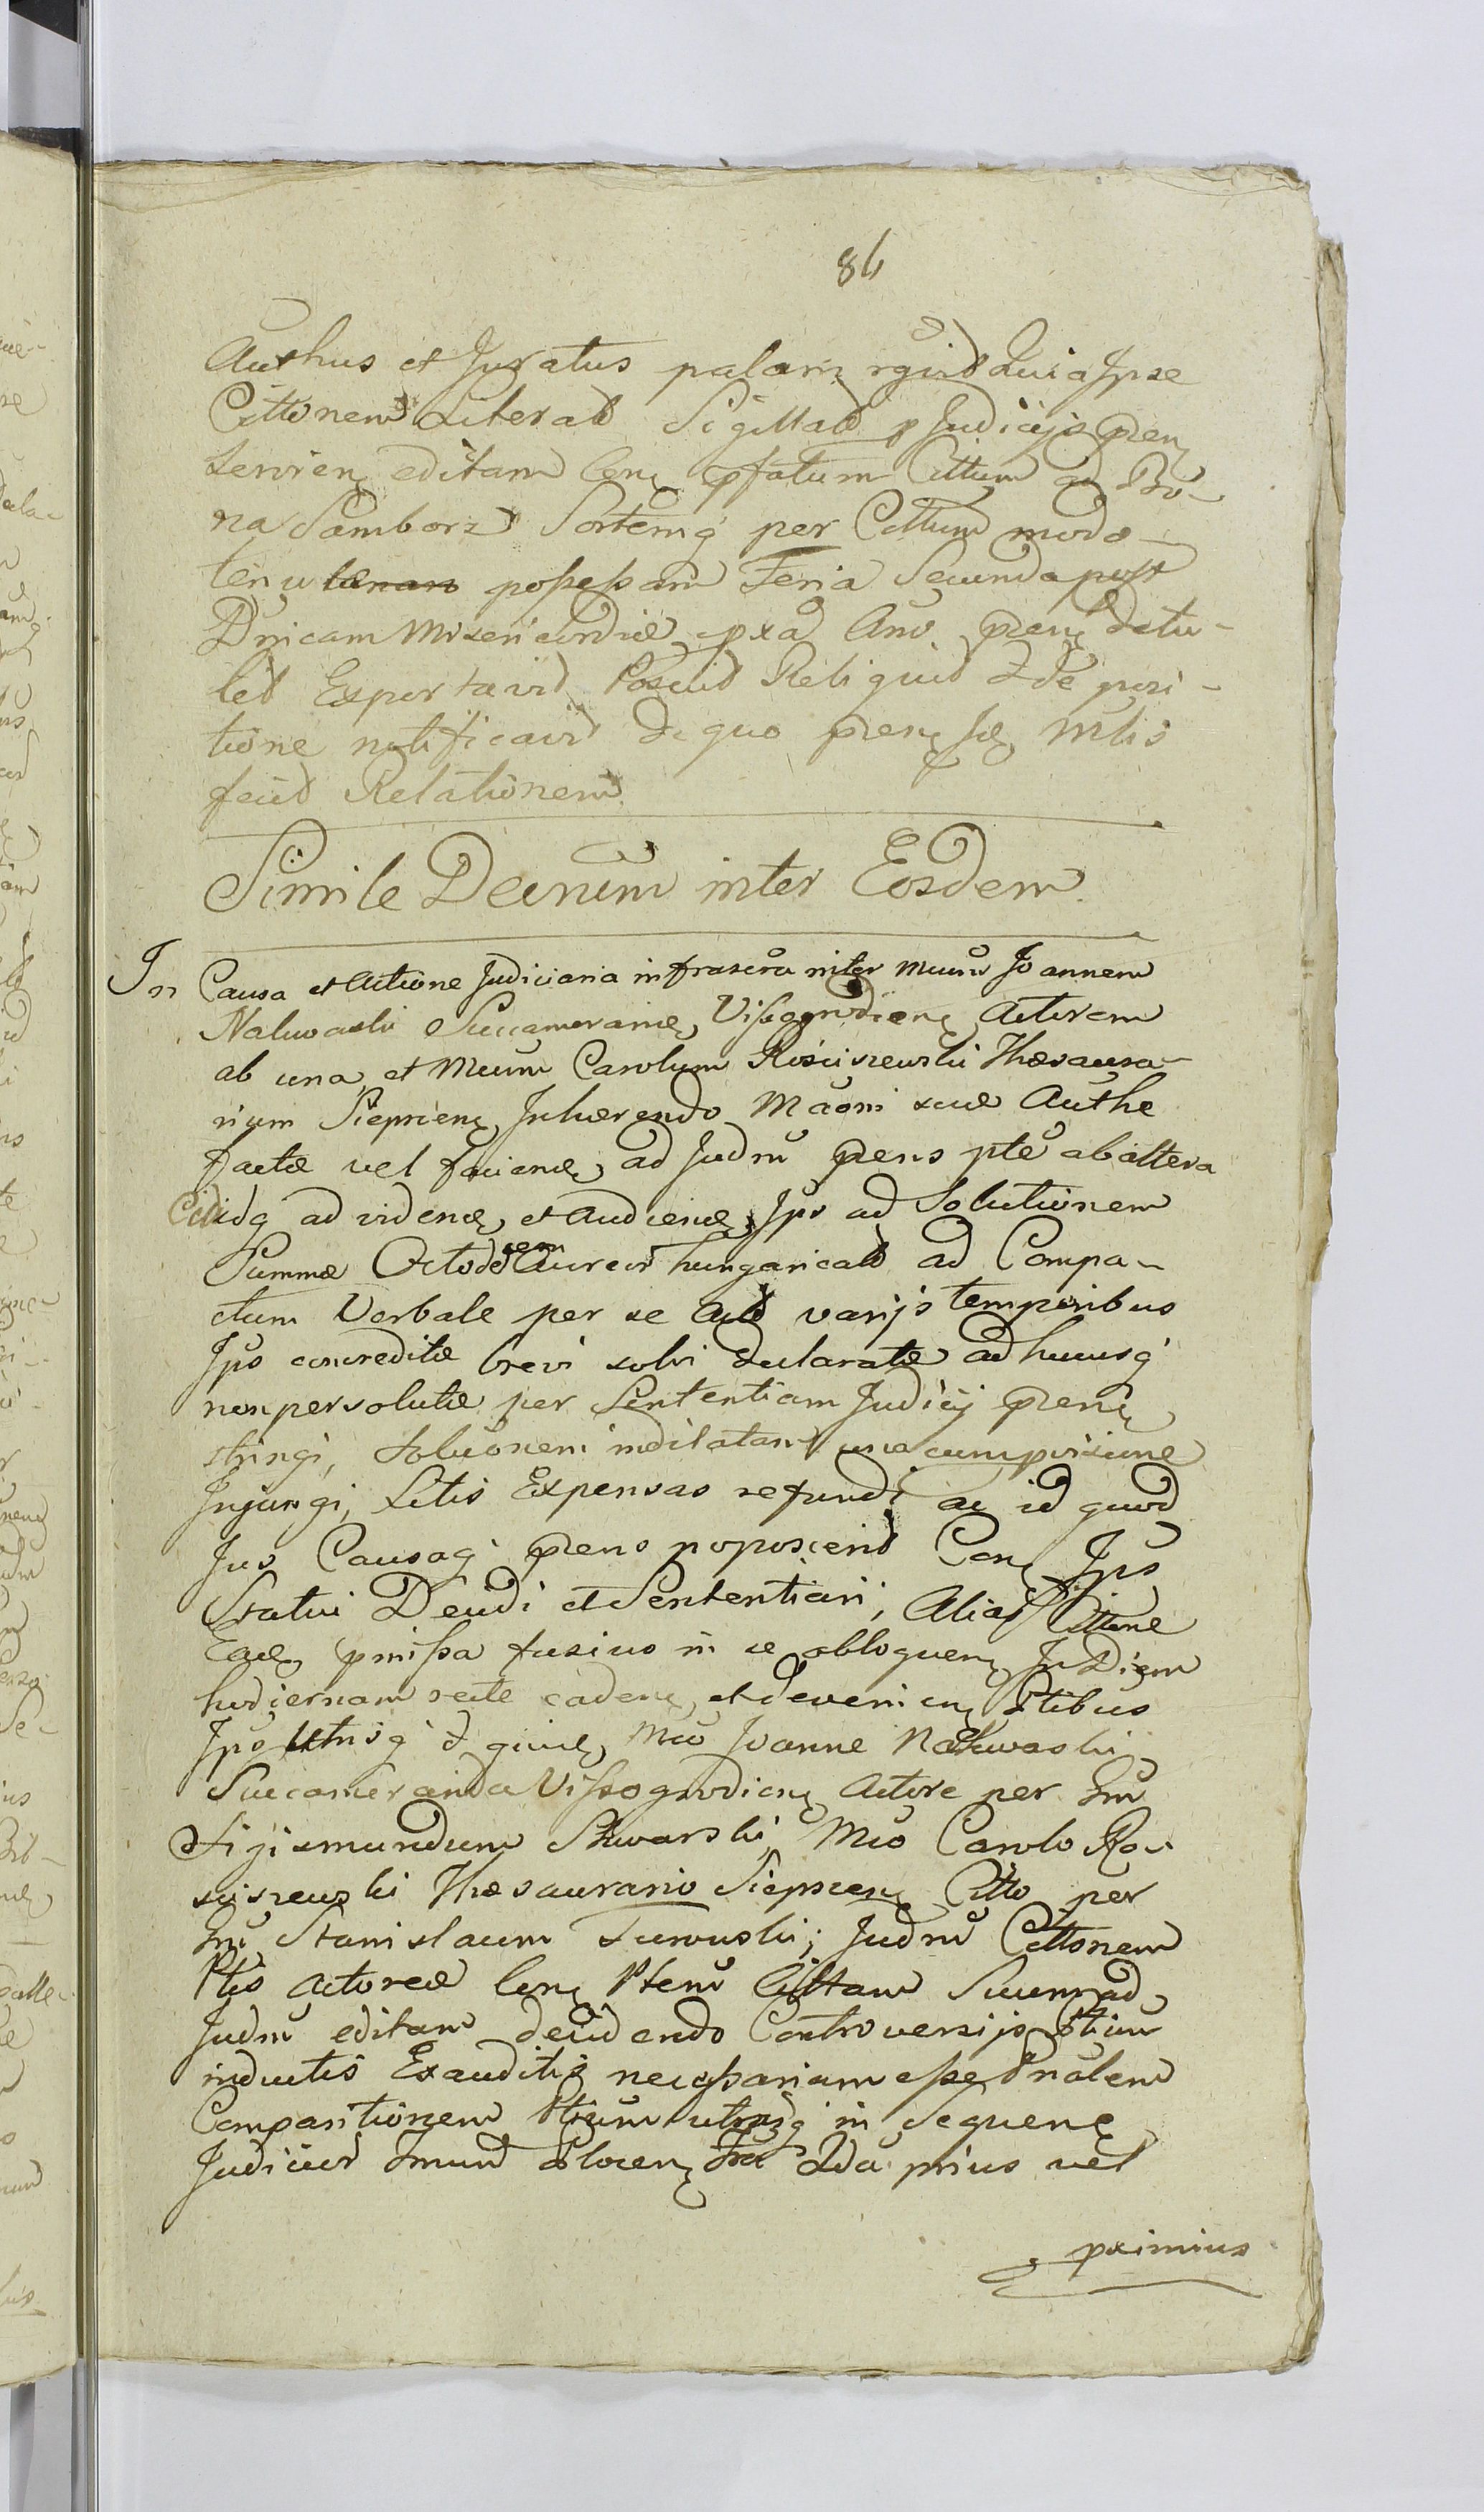 86
Authus et Juratus palam rgivit Quia Ipse
Cittonem Literat Sigillat p Judicijs pren
servien editam Cone pfatum Cittum ad Bo-
na Samborz Sortemq per Cittum modo
tenu possessam Feria Secunda post
Dnicam Misericordiæ pxa Ano pren detu-
lit Exportavit Posuit Reliquit Et de posi-
tione notificavit de quo pren se Mtis
fecit Relationem.
Simile Decretum inter Eosdem.
In Causa et Actione Judiciaria infrascra inter Mcum Joannem
Nakwaski Succamerariæ Vissegrodiens Actorem
ab una, et Mcum Carolum Rosciszewski Thesaura-
rium Sieprcens Inhærendo Maoni suæ Authe
factæ vel faciendæ ad Judm prens pte ab altera
Citidq ad videndæ et Audiendæ Ips ad Solutionem
Summæ Octodecem Aureor hungaricalt ad Compa-
ctum Verbale per se Act varijs temporibus
Ips concreditæ brevi solvi declaratæ adhucusq
non persolutæ per Sententiam Judicij pren
stringi, Soluonem indilatam una cum poxione
Injungi, Litis Expensas refundi ac id quod
Jus Causaq prens poposcerit Con Ips
Statui Decidi et Sententiari, Alias Cittone
Eade pmissa fusius in se obloquen In Diem
hodiernam recte caden et devenien Ptibus
Ips Utrisq d quide, Mco Joanne Nakwaski
Succamerario Vissogrodiens Actore per Gm
Sigismundum Skwarski, Mco Carolo Ros-
sciszewski Thesaurario Sieprcens Citto per
Gm Stanislaum Turowski; Judm Cittonem
Ptis Actoreæ Cone Ptem Cittam Suum ad
Judm editam decidendo Controversijs Ptium
inductis Exauditis necessariam esse
Comparitionem Ptium utrusq in Sequen
Judicior Gmund Plocen Fra 2da prius vel
pximius